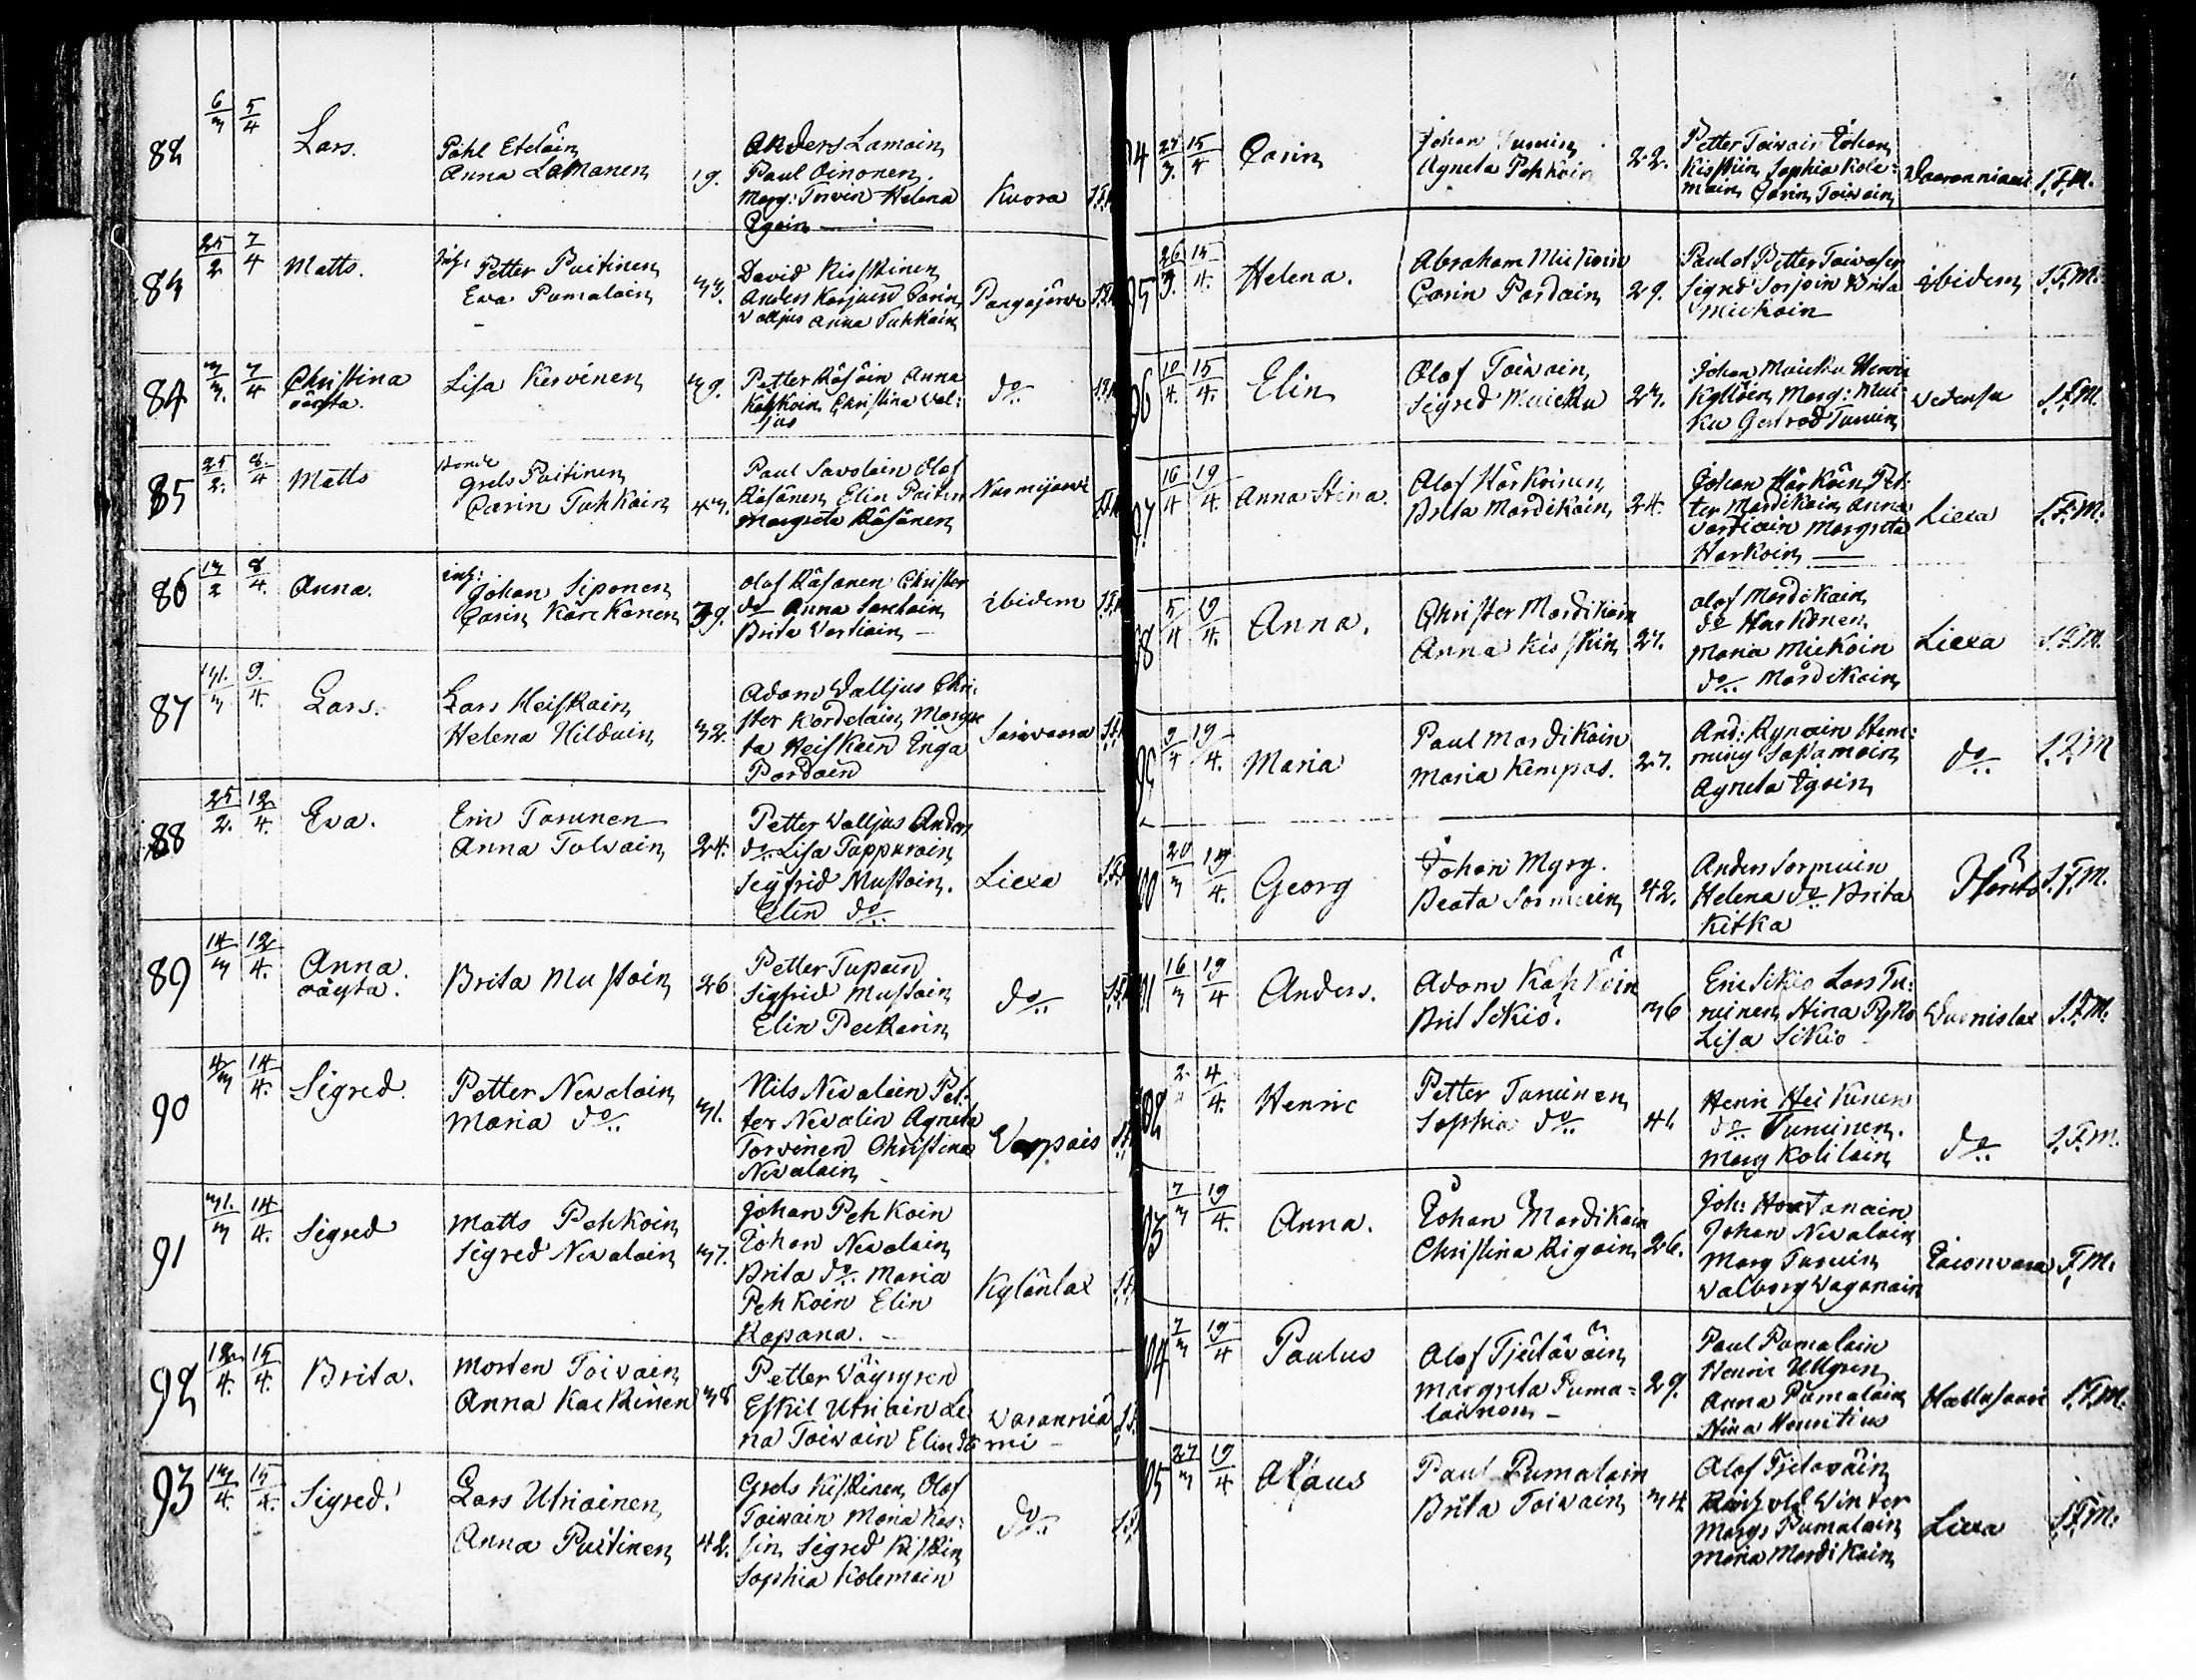 82 6/3 5/4 Lars. Påhl Etelain Anna Lamanen 19. Anders Lamain
Paul Oinonen.
Marg: Torvin Helena Kuora
Egoin
83 25/2 7/4 Matts. Petter Puitinen Eva Pumalain 33. David Kisskinen
Anders Karjuein Carin
Valljus Anna Tuhkain
84 3/3. 7/4 Christina oägta. Lisa Kervinen 39. Petter Räsäin Anna
Kahkoin Christina Val:
jus do
85 25/2. 8/4 Matts Bonde Grels Puitinen Carin Tuhkain 43. Paul Savolain Olof
Räsänen Elin Poitin Nurmijärvi
Margreta Räsänen
86 13/2 8/4. Anna. inh: Johan Siponen Carin Kärckänen 39. Olof Räsänen Christer
do Anna Saretain ibidem
Brita Vartiain
87 31./3 9./4. Lars. Lars Heiskain Helena Hilduin 32. Adam Valljus Chri-
ster Kordelain Margre
ta Heiskain Inga
Pardain
88 25/2. 12/4. Eva. Eric Torunen Anna Tolvain 24. Petter Valljus Anders
do Lisa Tappurain
Seigfrid Mustoin. Liexa
Elin do
89 14/3 12/4. Anna. oägta. Brita Mustoin 26 Petter Tupain
Sigfrid Mustoin
Elin Peckarin do
90 4/3 14/4. Sigred Petter Nevalain Maria do 31. Nils Nevalain Pet-
ter Nevalin Agneta
Torvinen Christina
Nevalain
91 31./3 14/4. Sigred Matts Pehkoin Sigred Nevalain 37. Johan Pehkoin
Johan Nevalain
Brita do Maria
Pehkoin Elin Kylänlax
Ropana.
92 12/4. 15/4. Brita. Morten Toivain Anna Kackinen 38 Petter Väyrynen
Eskil Utriain Le
na Toivain Elin do
93 13/4. 15/4. Sigred. Lars Utriainen Anna Puitinen 42. Grels Kiskinen Olof
Toivain Maria Kas:
sin Sigred Kiskin do
Sophia Kolemain
94 27/3. 15/4 Carin Johan Agneta Pehkoin 22. Petter Toivain Johan
Kisskin Sophia Kole:
main Carin Toivain S.F.M.
95 26/3. 15/4. Helena. Abraham Mickoin Carin Pardain 29. Paul of Petter Toivain
Sigred Sorjoin Brita ibidem S.F.M.
Mickoin
96 10/4. 15/4. Elin Olof Toivain Sigred Muicku 23. Johan Muicku Henric
Kyllöin Marg: Mui
ku Gertrod Turuin S.F.M.
97 16/4 19/4. Anna Stina. Olof Härkoinen Brita Mardikain 24. Johan Härkäin Pet:
ter Mardikain Anna
Vartiain Margreta Liexa S.F.M.
Harkoin
98 5/4 19/4. Anna. Christer Mardikain Anna Kisskin 27. Olof Mardikain
do Harkonen
Maria Mickoin Liexa S.F.M.
do Mardikain
99 9/4 19/4. Maria Paul Mardikain Maria Kempas. 27. And: Rynain Hen:
ning Sassamoin do S.F.M
Agneta Egoin
100 20/3 19/4. Georg Johan Myry. Beata Sormuin 42. Anders Sormuin
Helena do Brita S.F.M.
Kitka
101 16/3 19/4 Anders. Adam Kahkoin Brit Sikiö. 36 Eric Sikiö Lars Tu:
ruinen Stina Pyko S.F.M.
Lisa Sikiö
102 4/4. Henric Petter Turuinen Sophia do 41 Henri Heikinen
do Turuinen. do S.F.M.
Marg Kolilain
103 7/3 19/4. Anna. Johan Mardikain Christina Rigoin 26. Joh: Hortanain
Johan Nevalain
Marg Turuin S.F.M.
Valborg Vaganain
104 7/3 19/4 Paulus Olof Tjeläväin Margreta Puma-
lainen 29. Paul Pumalain
Henric Ullgren
Anna Pumalain S.F.M.
Stina Henritius
105 27/3 19/4 Olaus Paul Pumalain Brita Toivain 34 Olof Tjeläväin
Reinhold Winter
Marg: Pumalain Liexa S.F.M.
Maria Mardikain